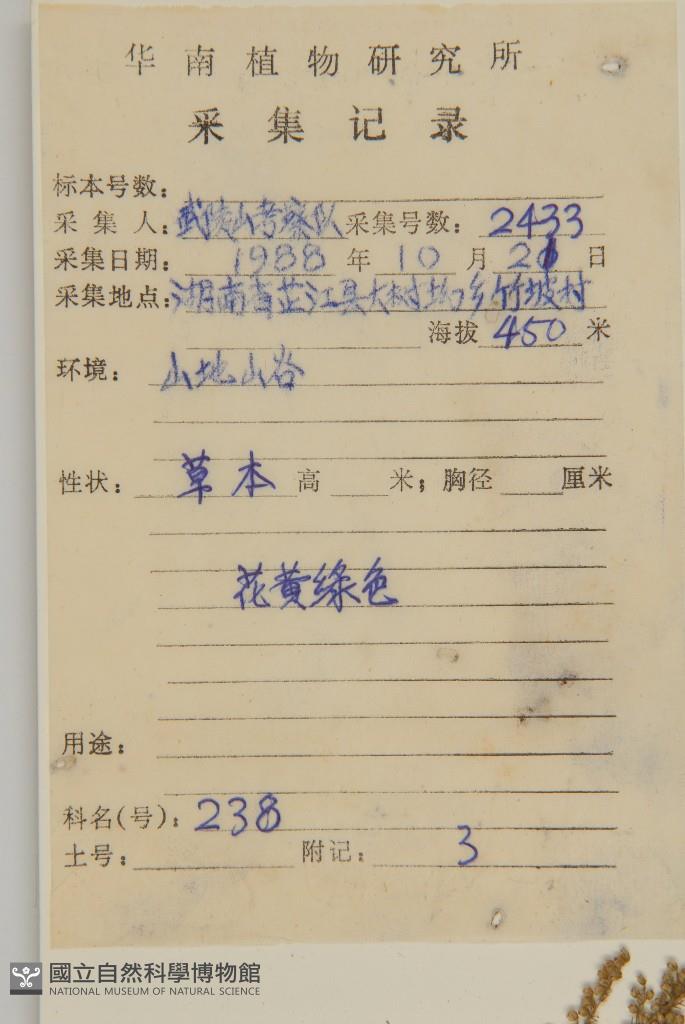 华南植物研究所
采集记录
标本号数：
采集人：武陵山考察队 采集号数：2433
采集日期：1988 年 10 月 21 日
采集地点：湖南省芷江县大树坳乡竹坡村
海拔 450 米
环境：山地山谷
性状：草本 高 米；胸径 厘米
花黄绿色
用途：
科名(号)：238
土号： 附记：3
國立自然科學博物館
NATIONAL MUSEUM OF NATURAL SCIENCE